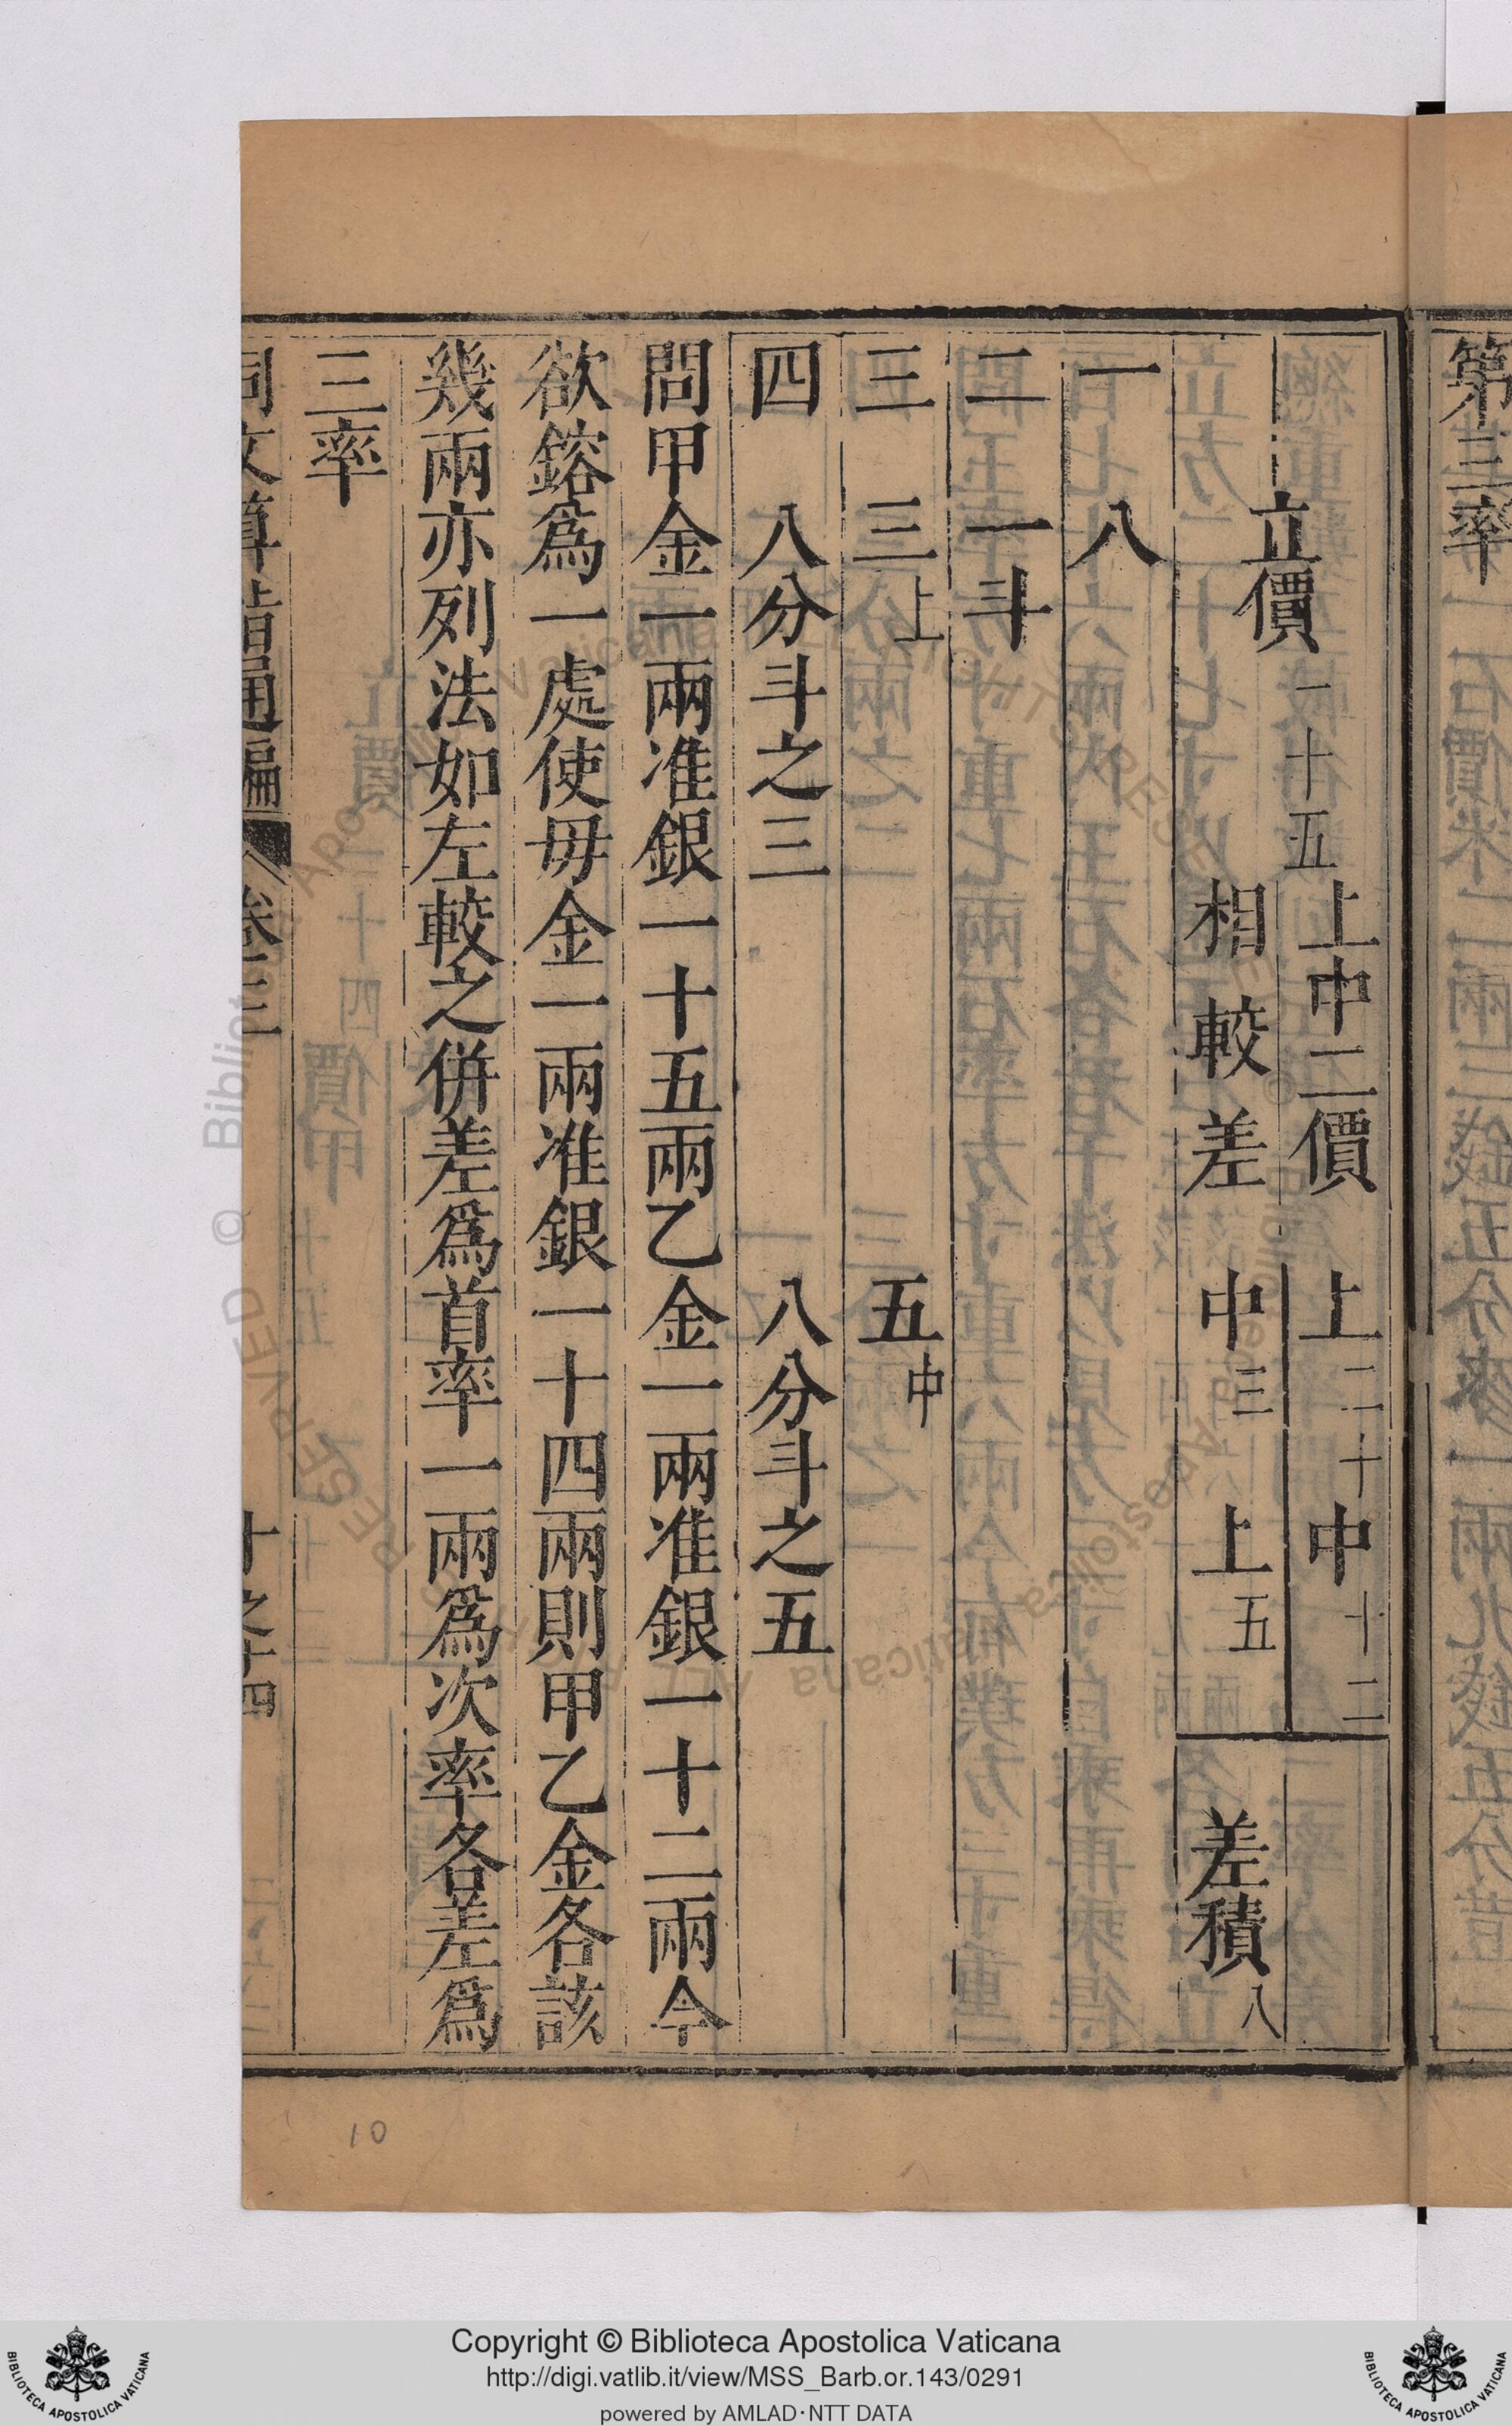 第三率
上中二價 上二十 中十二
立價一十五
相較差 中三 上五 差積八
一 八
二 一斗
三 三上 五中
四 八分斗之三 八分斗之五
問甲金一兩准銀一十五兩乙金一兩准銀一十二兩今
欲鎔為一處使毋金一兩准銀一十四兩則甲乙金各該
幾兩亦列法如左較之併差爲首率一兩爲次率各差爲
三率
同文算指通編 卷三 十之十四
10
Copyright © Biblioteca Apostolica Vaticana
http://digi.vatlib.it/view/MSS_Barb.or.143/0291
powered by AMLAD·NTT DATA
BIBLIOTECA APOSTOLICA VATICANA
BIBLIOTECA APOSTOLICA VATICANA